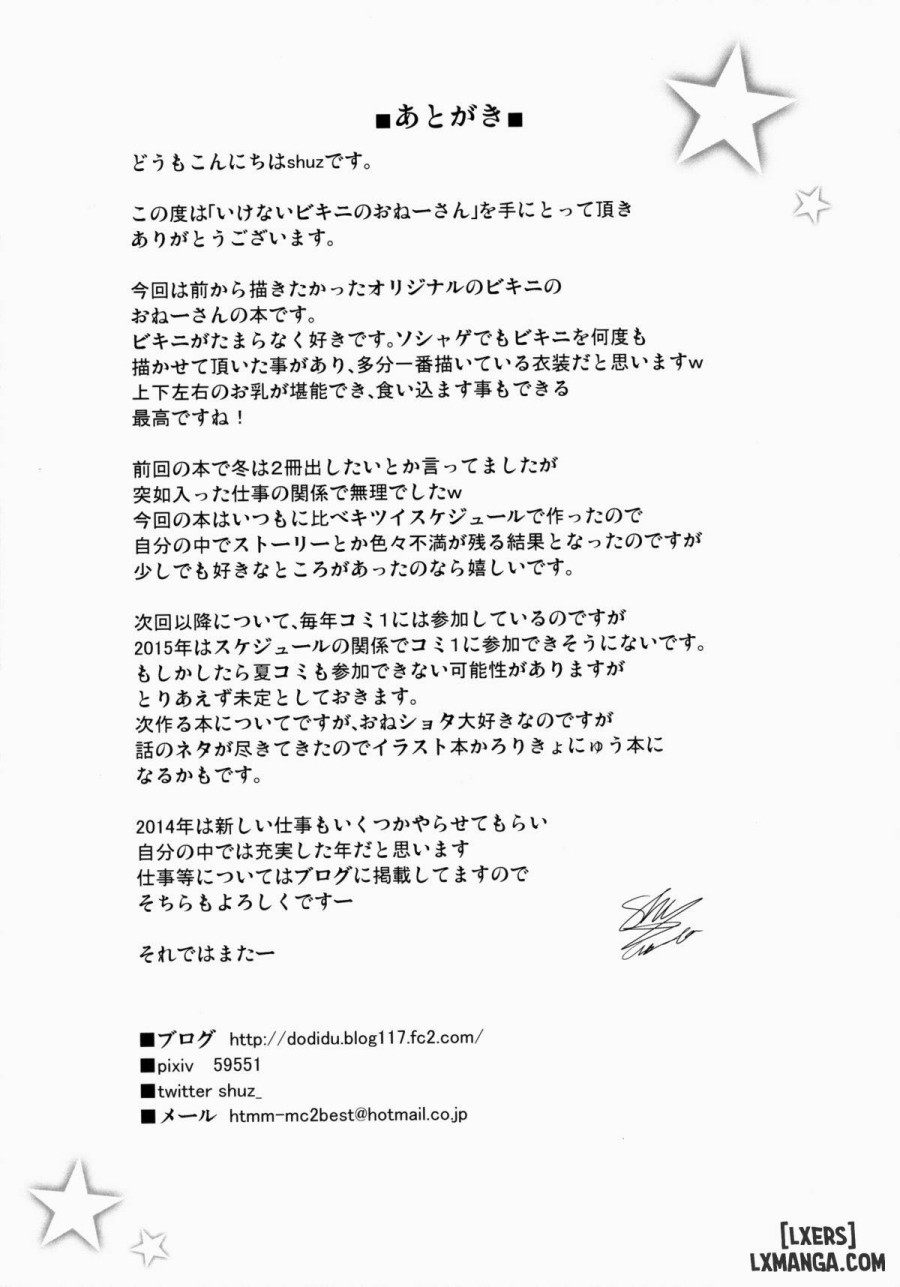 ■あとがき■
どうもこんにちはshuzです。
この度は「いけないビキニのおねーさん」を手にとって頂き
ありがとうございます。
今回は前から描きたかったオリジナルのビキニの
おねーさんの本です。
ビキニがたまらなく好きです。ソシャゲでもビキニを何度も
描かせて頂いた事があり、多分一番描いている衣装だと思いますw
上下左右のお乳が堪能でき、食い込ます事もできる
最高ですね！
前回の本で冬は2冊出したいとか言ってましたが
突如入った仕事の関係で無理でしたw
今回の本はいつもに比べキツイスケジュールで作ったので
自分の中でストーリーとか色々不満が残る結果となったのですが
少しでも好きなところがあったのなら嬉しいです。
次回以降について、毎年コミ1には参加しているのですが
2015年はスケジュールの関係でコミ1に参加できそうにないです。
もしかしたら夏コミも参加できない可能性がありますが
とりあえず未定としておきます。
次作る本についてですが、おねショタ大好きなのですが
話のネタが尽きてきたのでイラスト本かろりきょにゅう本に
なるかもです。
2014年は新しい仕事もいくつかやらせてもらい
自分の中では充実した年だと思います
仕事等についてはブログに掲載してますので
そちらもよろしくですー
それではまたー
■ブログ http://dodidu.blog117.fc2.com/
■pixiv 59551
■twitter shuz_
■メール htmm-mc2best@hotmail.co.jp
[LXERS]
LXMANGA.COM